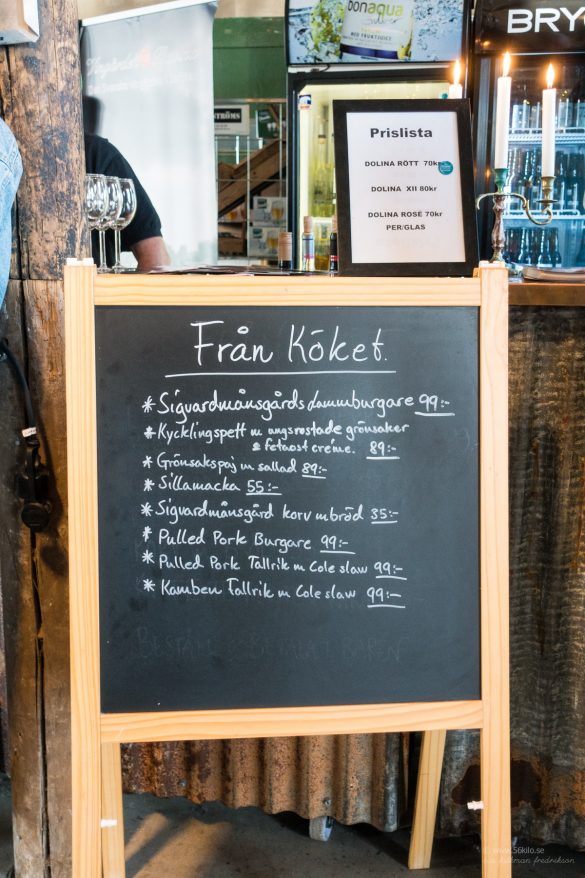 bonaqua
MED FRUKTJUICE
BRY
STRÖMS
Prislista
DOLINA RÖTT 70kr
DOLINA XII 80kr
DOLINA ROSE 70kr
PER/GLAS
Från Köket.
* Sigvardmånsgårds Lammburgare 99:-
* Kycklingspett m ångsrostade grönsaker
& fetaost créme. 89:-
* Grönsakspaj m sallad 89:-
* Sillamacka 55:-
* Sigvardmånsgård korv m bröd 35:-
* Pulled Pork Burgare 99:-
* Pulled Pork Tallrik m Cole slaw 99:-
* Kamben Tallrik m Cole slaw 99:-
BESTÄLL & BETALA I BAREN
www.56kilo.se
fredrikson